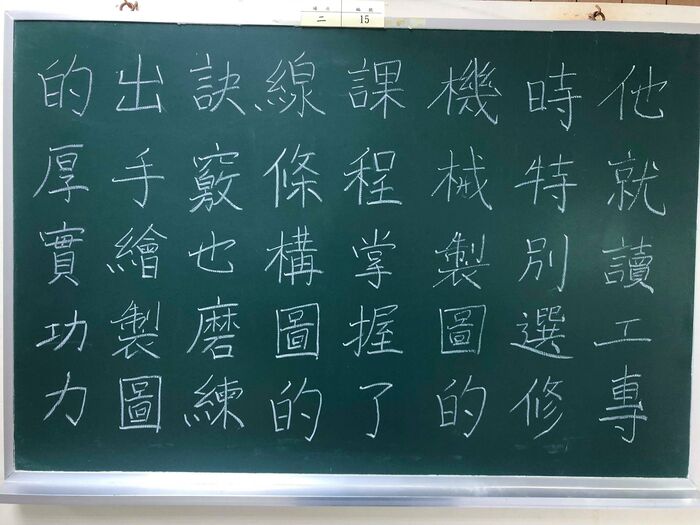 場次 編號
二 15
他就讀工專
時特別選修
機械製圖的
課程掌握了
線條構圖的
訣竅也磨練
出手繪製圖
的厚實功力